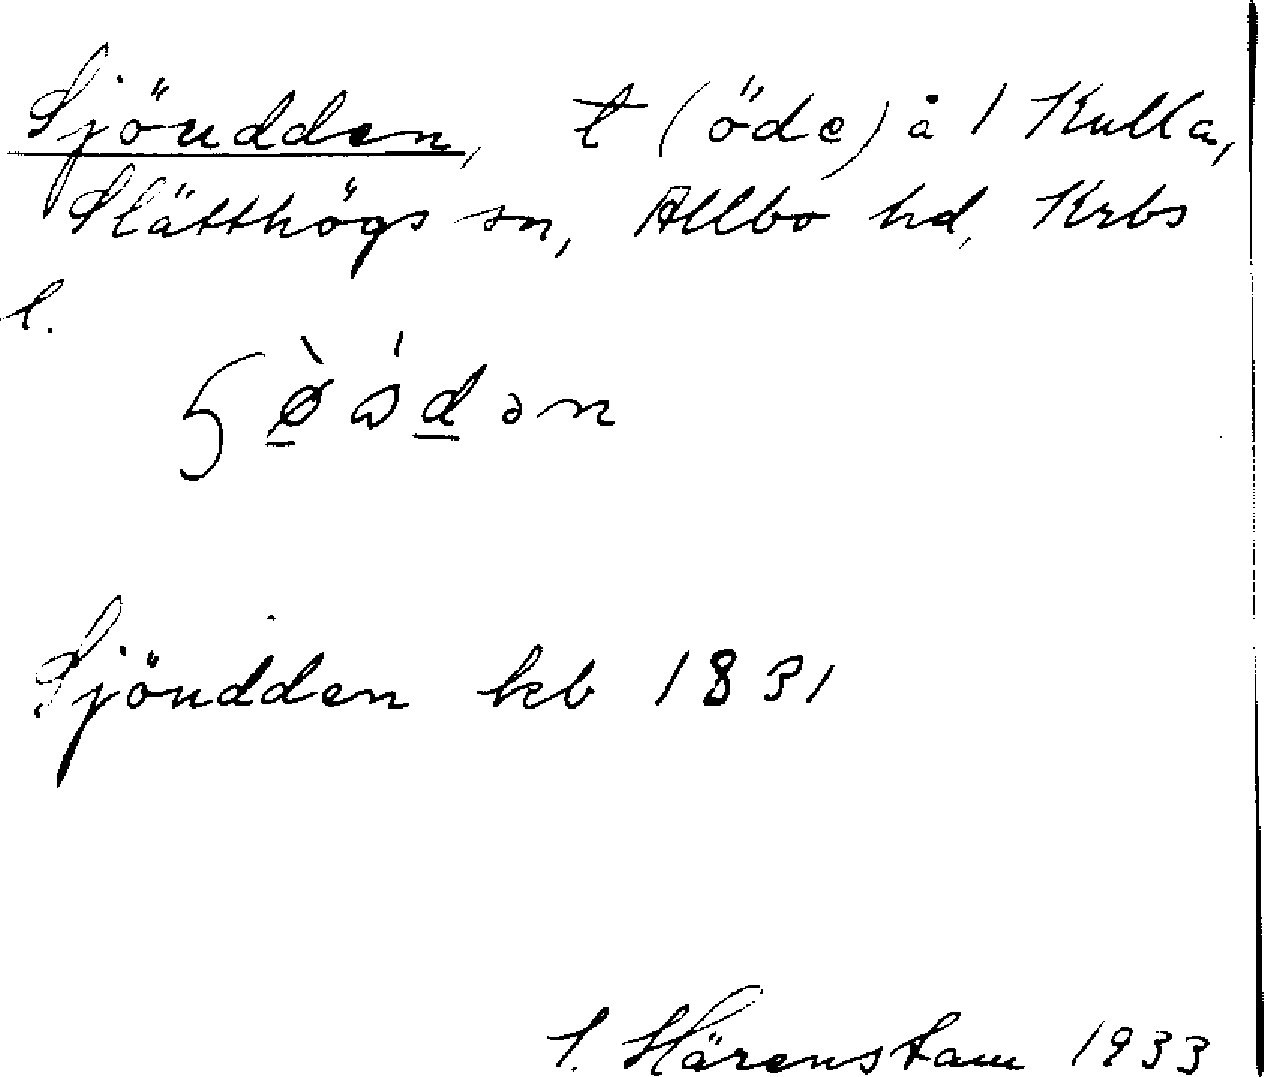 Sjöudden, t (öde) å 1 Kulla,
Slätthögs sn, Allbo hd, Krbs
l.
Sjöudden kb 1831
Härenstam 1933